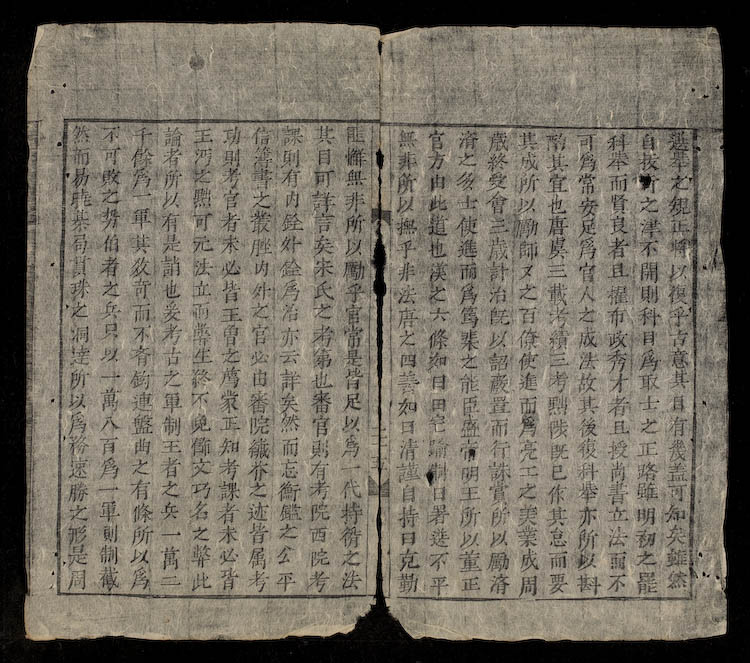 選舉之規正將以復乎古意其目有幾盖可知矣雖然
自抜所之津不開則科目爲取士之正略雖明初之罷
科举而賢良者且擢布政秀才者且授尚書立法而不
可爲常安足爲官人之成法故其後復科举亦所以斟
酌其宜也唐虞三載考績三考黜陟既已依其怠而要
其成所以勵師乂之百僚使進而爲亮工之美業成周
歳終受會三歳計治既以詔廢置而行誅賞所以勵濟
濟之多士使進而爲篤棐之能臣盛帝明王所以董正
官方由此道也漢之六條如曰田宅踰制曰若選不平
無非所以撫乎非法唐之四善如曰清謹自持曰克勤
匪懈無非所以勵乎官常是皆足以爲一代持衡之法
其目可詳言矣宋氏之考第也審官則有考院西院考
課則有内銓外銓爲冶亦云詳矣然而忘衡鑑之公平
信簿書之叢脞内外之官必由審院纎芥之迹皆属考
功則考官者未必皆王曾之薦蒙正知考課者未必皆
王沔之黜可元法立而弊生終不免飾文巧名之弊此
論者所以有是誚也爰考古之軍制王者之兵一萬二
千餘爲一軍其敎苛而不吝鈎連盤曲之有條所以爲
不可敗之勢伯者之兵只以一萬八百爲一軍則制截
然而易曉棊局貫珠之洞達所以爲務速勝之形是周